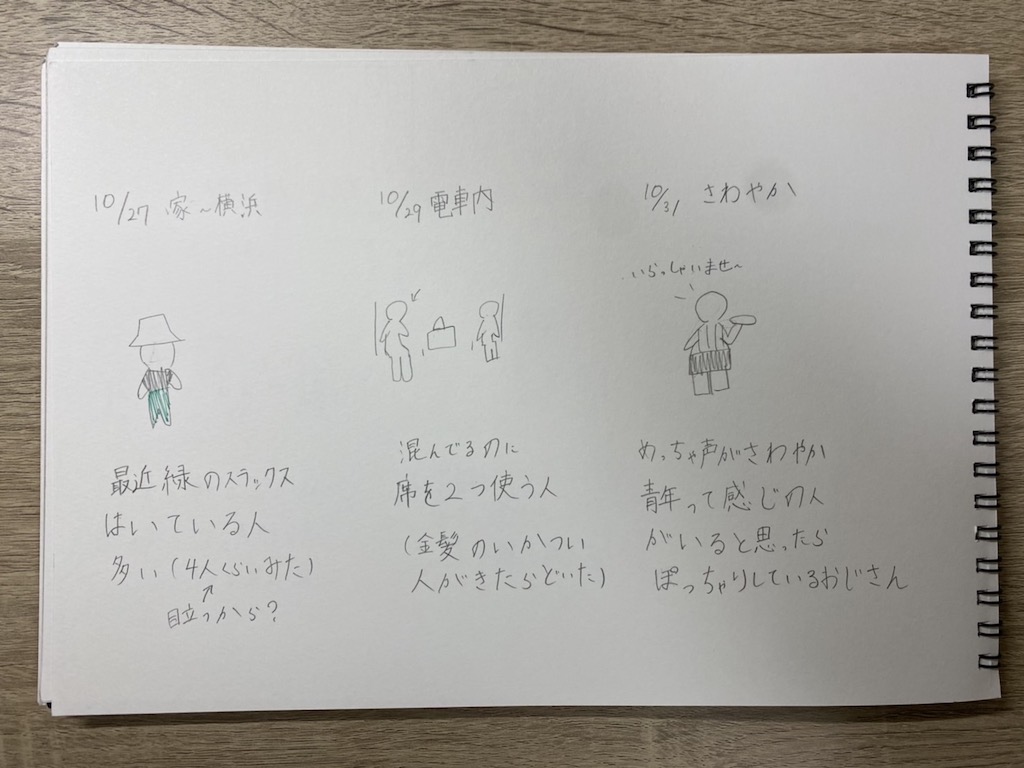 10/27 家〜横浜
最近緑のスラックス
はいている人
多い(4人くらいみた)
目立つから?
10/29 電車内
混んでるのに
席を2つ使う人
(金髪のいかつい
人がきたらどいた)
10/31 さわやか
いらっしゃいませ〜
めっちゃ声がさわやか
青年って感じの人
がいると思ったら
ぽっちゃりしているおじさん